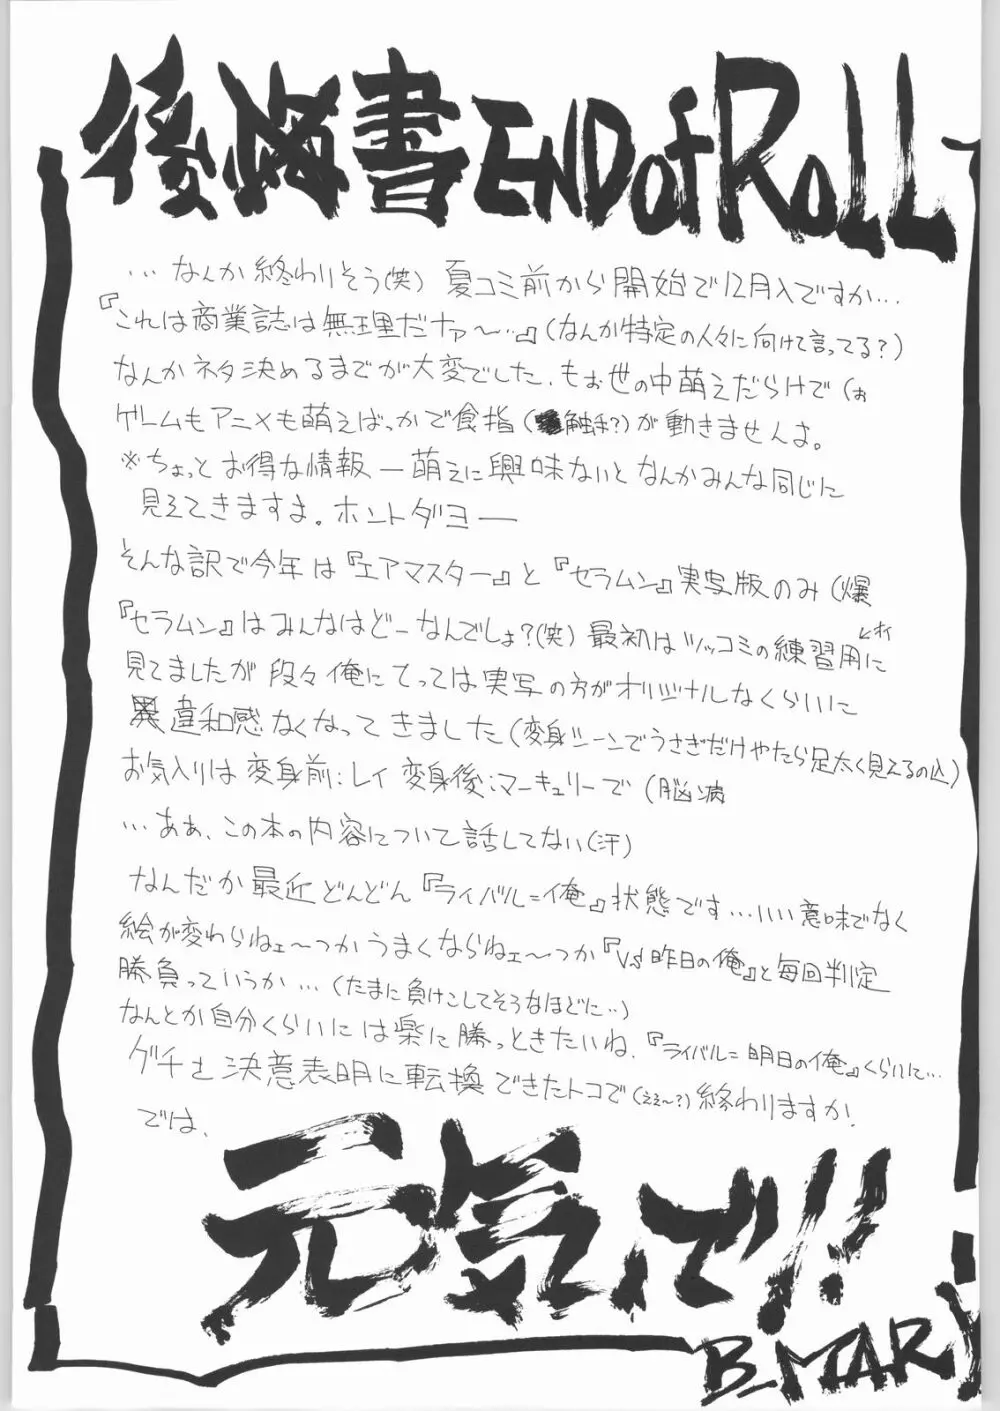 後悔書 END of RoLL
…なんか終わりそう(笑) 夏コミ前から開始で12月入ですか…
『これは商業誌は無理だナァ〜…』(なんか特定の人々に向けて言ってる?)
なんかネタ決めるまでが大変でした、もぉ世の中萌えだらけで(ぉ
ゲームもアニメも萌えばっかで食指(触手?)が動きませんよ。
※ちょっとお得な情報―萌えに興味ないとなんかみんな同じに
見えてきますよ。ホントダヨー
そんな訳で今年は『エアマスター』と『セラムン』実写版のみ(爆
『セラムン』はみんなはどーなんでしょ?(笑) 最初はツッコミの練習用に
←オイ
見てましたが段々俺にとっては実写の方がオリジナルなくらいに
違和感なくなってきました(変身シーンでうさぎだけやたら足太く見えるの込)
お気入りは変身前:レイ 変身後:マーキュリーで(脳病
…ああ、この本の内容について話してない(汗)
なんだか最近どんどん『ライバル=俺』状態です…いい意味でなく
絵が変わらねェ〜つかうまくならねェ〜つか『VS昨日の俺』と毎回判定
勝負っていうか…(たまに負けこしてそうなほどに…)
なんとか自分くらいには楽に勝っときたいね、『ライバル=明日の俺』くらいに…
グチを決意表明に転換できたトコで(ええ〜?)終わりますか!
では、
元気で!!
B_MARY